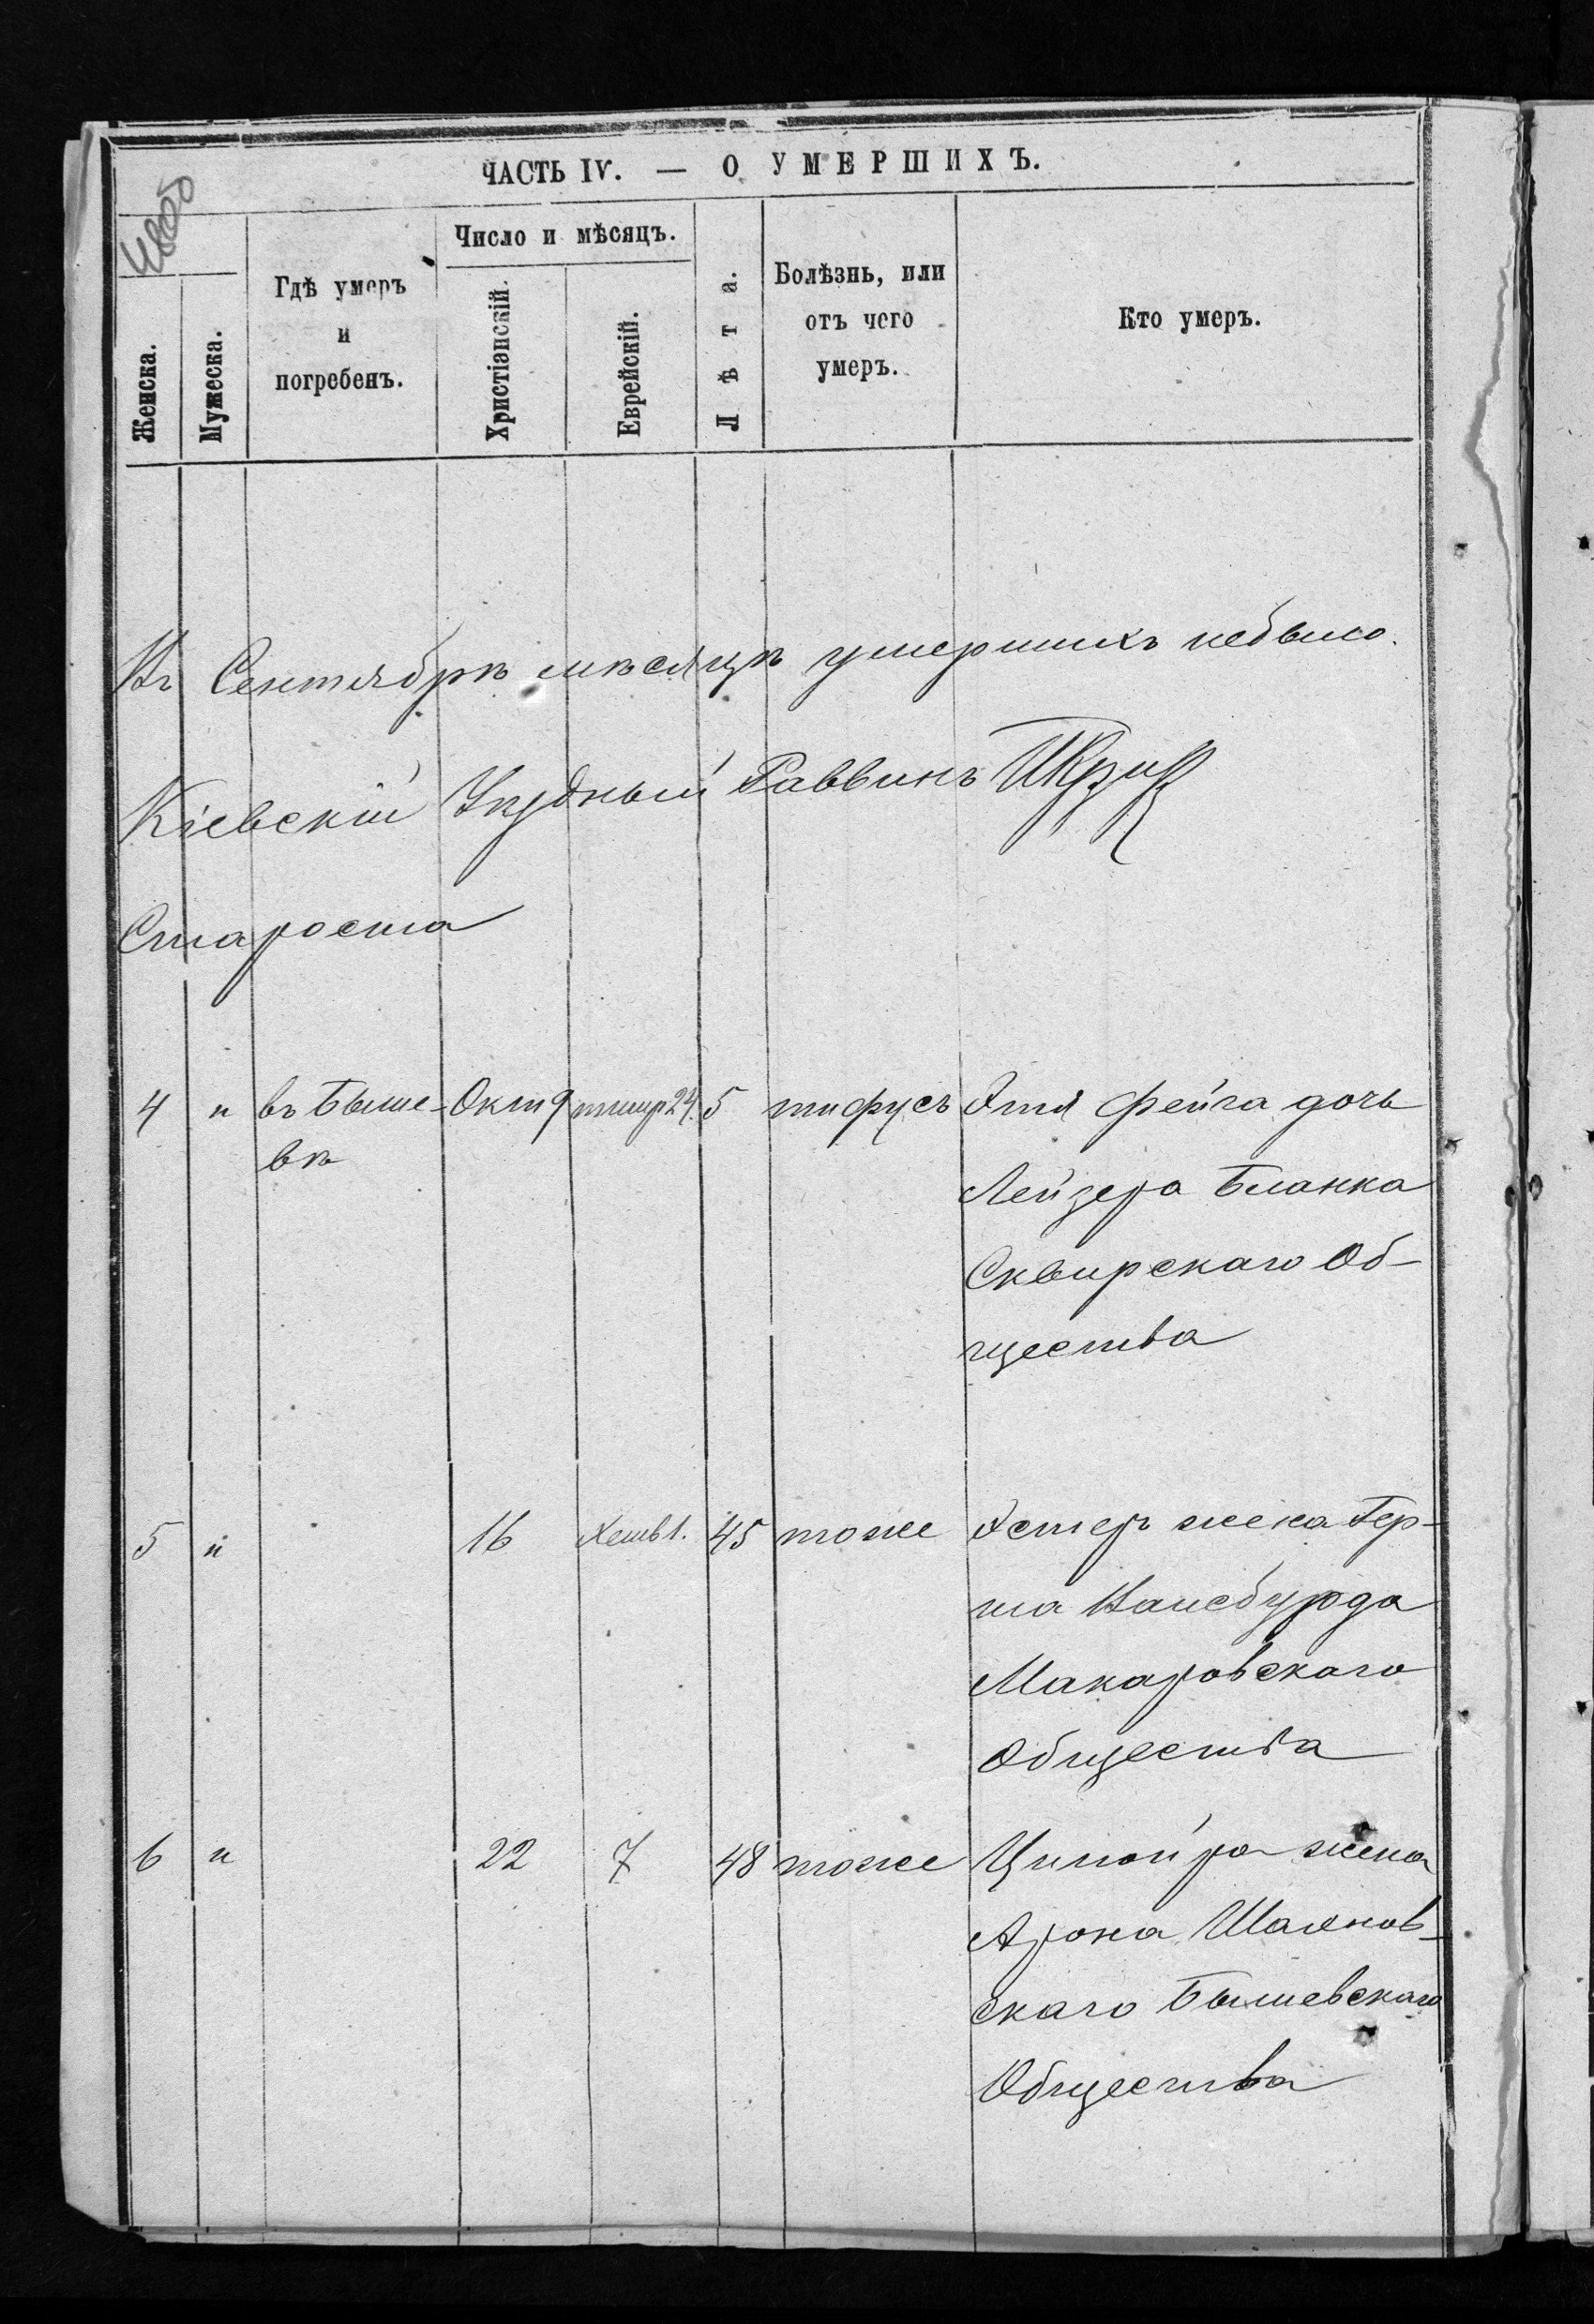 ЧАСТЬ IV. — О УМЕРШИХЪ.
Женска.
Мужеска.
Гдѣ умеръ
и
погребенъ.
Число и мѣсяцъ.
Христіанскій.
Еврейскій.
Лѣта.
Болѣзнь, или
отъ чего
умеръ.
Кто умеръ.
Въ Сентябрѣ мѣсяцѣ умершихъ небыло.
Кіевскій Уѣздный Раввинъ
Староста
4 " въ Быше- Окт 9 тишр 24. 5 тифусъ Этя Фейга дочь
вѣ
Лейзера Бланка
Сквирскаго Об-
щества
5 " 16 Хешв 1. 45 тоже Эстеръ жена Гер-
ша
Макаровскаго
Общества
6 " 22 7 48 тоже Ципойра жена
Арона
скаго Бышевскаго
Общества